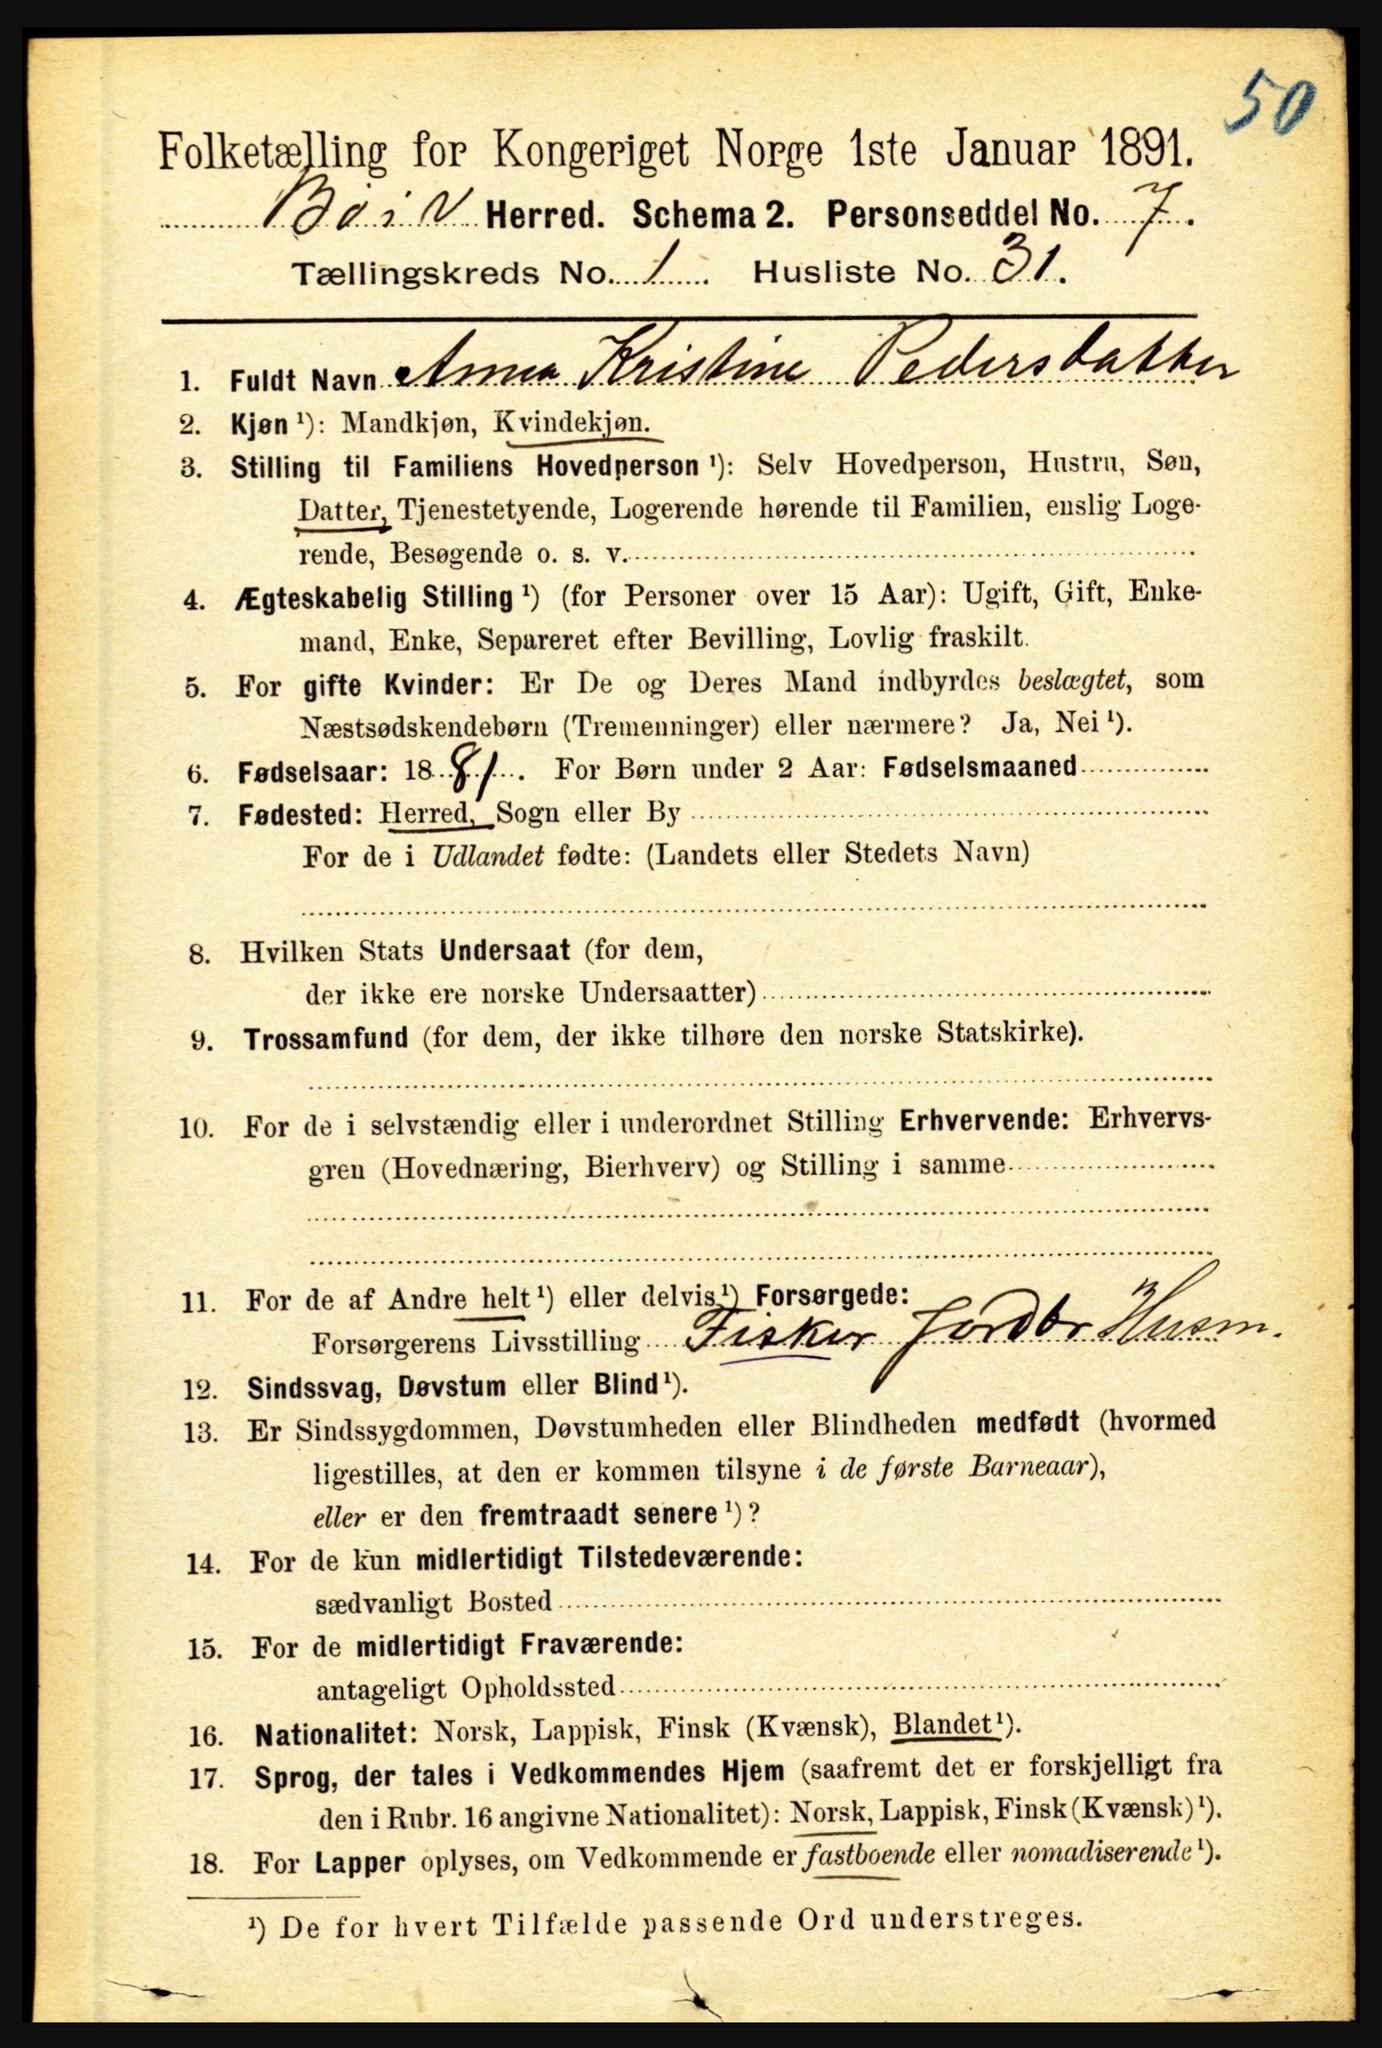 50
Folketælling for Kongeriget Norge 1ste Januar 1891.
Bø i V Herred. Schema 2. Personseddel No. 7.
Tællingskreds No. 1. Husliste No. 31.
1. Fuldt Navn Anna Kristine Pedersdatter
2. Kjøn ¹): Mandkjøn, Kvindekjøn.
3. Stilling til Familiens Hovedperson ¹): Selv Hovedperson, Hustru, Søn,
Datter, Tjenestetyende, Logerende hørende til Familien, enslig Loge-
rende, Besøgende o. s. v.
4. Ægteskabelig Stilling ¹) (for Personer over 15 Aar): Ugift, Gift, Enke-
mand, Enke, Separeret efter Bevilling, Lovlig fraskilt.
5. For gifte Kvinder: Er De og Deres Mand indbyrdes beslægtet, som
Næstsødskendebørn (Tremenninger) eller nærmere? Ja, Nei ¹).
6. Fødselsaar: 1881. For Børn under 2 Aar: Fødselsmaaned
7. Fødested: Herred, Sogn eller By
For de i Udlandet fødte: (Landets eller Stedets Navn)
8. Hvilken Stats Undersaat (for dem,
der ikke ere norske Undersaatter)
9. Trossamfund (for dem, der ikke tilhøre den norske Statskirke).
10. For de i selvstændig eller i underordnet Stilling Erhvervende: Erhvervs-
gren (Hovednæring, Bierhverv) og Stilling i samme
11. For de af Andre helt ¹) eller delvis ¹) Forsørgede:
Forsørgerens Livsstilling Fisker Jordbr Husm.
12. Sindssvag, Døvstum eller Blind ¹).
13. Er Sindssygdommen, Døvstumheden eller Blindheden medfødt (hvormed
ligestilles, at den er kommen tilsyne i de første Barneaar),
eller er den fremtraadt senere ¹)?
14. For de kun midlertidigt Tilstedeværende:
sædvanligt Bosted
15. For de midlertidigt Fraværende:
antageligt Opholdssted
16. Nationalitet: Norsk, Lappisk, Finsk (Kvænsk), Blandet ¹).
17. Sprog, der tales i Vedkommendes Hjem (saafremt det er forskjelligt fra
den i Rubr. 16 angivne Nationalitet): Norsk, Lappisk, Finsk (Kvænsk) ¹).
18. For Lapper oplyses, om Vedkommende er fastboende eller nomadiserende ¹).
¹) De for hvert Tilfælde passende Ord understreges.